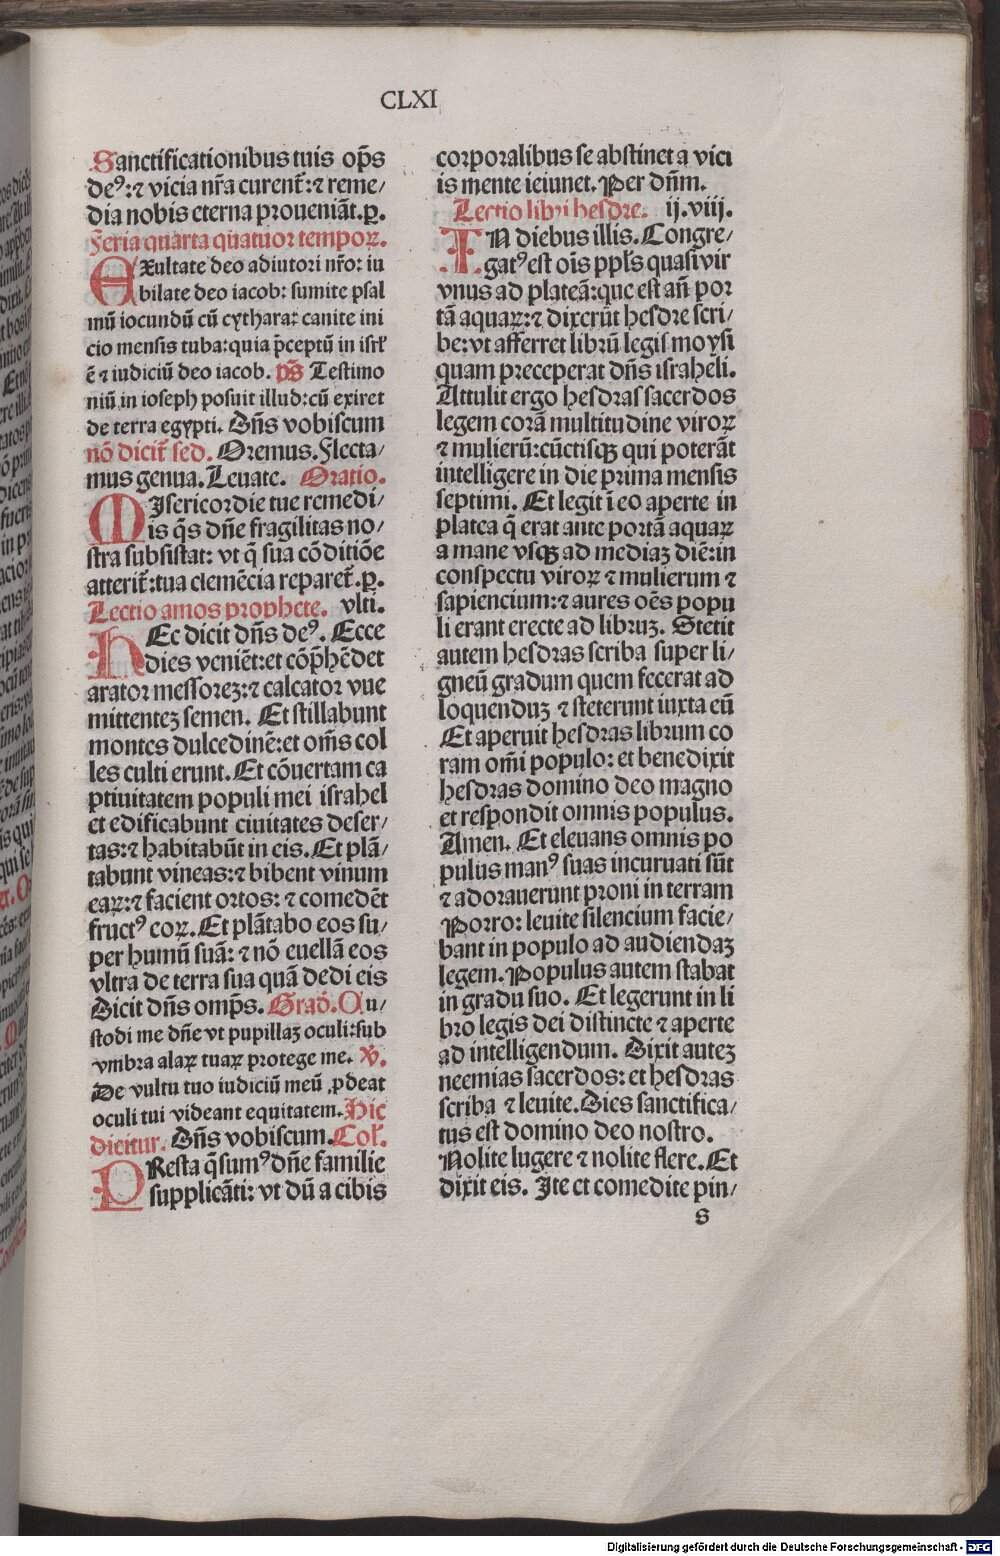 CLXI
Sanctificationibus tuis op̄s
deꝰ: ⁊ vicia nr̄a curent̄: ⁊ reme/
dia nobis eterna proueniāt. p.
Feria quarta quatuor temporꝝ.
EXultate deo adiutori nr̄o: iu
bilate deo iacob: sumite psal
mū iocundū cū cythara: canite ini
cio mensis tuba: quia p̄ceptū in isrl̄
ē ⁊ iudiciū deo iacob. ps̄ Testimo
niū in ioseph posuit illud: cū exiret
de terra egypti. Dn̄s vobiscum
nō dicit̄ sed. Oremus. Flecta/
mus genua. Leuate. Oratio.
MIsericordie tue remedi/
is q̄s dn̄e fragilitas no/
stra subsistat: vt q̄ sua cōditiōe
atterit̄: tua clemēcia reparet̄. p.
Lectio amos prophete. vlti.
HEc dicit dn̄s deꝰ. Ecce
dies veniēt: et cōp̄hēdet
arator messoreꝫ: ⁊ calcator vue
mittenteꝫ semen. Et stillabunt
montes dulcedinē: et om̄s col
les culti erunt. Et cōuertam ca
ptiuitatem populi mei israhel
et edificabunt ciuitates deser/
tas: ⁊ habitabūt in eis. Et plā/
tabunt vineas: ⁊ bibent vinum
earꝝ: ⁊ facient ortos: ⁊ comedēt
fructꝰ eoꝝ. Et plātabo eos su/
per humū suā: ⁊ nō euellā eos
vltra de terra sua quā dedi eis
Dicit dn̄s omp̄s. Grad̄. Cu/
stodi me dn̄e vt pupillaꝫ oculi: sub
vmbra alaꝝ tuaꝝ protege me. v̄.
De vultu tuo iudiciū meū ꝓdeat
oculi tui videant equitatem. Hic
dicitur. Dn̄s vobiscum. Col̄.
PResta q̄sumꝰ dn̄e familie
supplicāti: vt dū a cibis
corporalibus se abstinet a vici
is mente ieiunet. Per dn̄m.
Lectio libri hesdre. ij. viij.
IN diebus illis. Congre/
gatꝰ est oīs ppl̄s quasi vir
vnus ad plateā: que est an̄ por
tā aquaꝝ: ⁊ dixerūt hesdre scri/
be: vt afferret librū legis moysi
quam preceperat dn̄s israheli.
Attulit ergo hesdras sacerdos
legem corā multitudine viroꝝ
⁊ mulierū: cūctisqꝫ qui poterāt
intelligere in die prima mensis
septimi. Et legit ī eo aperte in
platea q̄ erat ante portā aquaꝝ
a mane vsqꝫ ad mediaꝫ diē: in
conspectu viroꝝ ⁊ mulierum ⁊
sapiencium: ⁊ aures oēs popu
li erant erecte ad libruꝫ. Stetit
autem hesdras scriba super li/
gneū gradum quem fecerat ad
loquenduꝫ ⁊ steterunt iuxta eū
Et aperuit hesdras librum co
ram om̄i populo: et benedixit
hesdras domino deo magno
et respondit omnis populus.
Amen. Et eleuans omnis po
pulus manꝰ suas incuruati sūt
⁊ adorauerunt proni in terram
Porro: leuite silencium facie/
bant in populo ad audiendaꝫ
legem. Populus autem stabat
in gradu suo. Et legerunt in li
bro legis dei distincte ⁊ aperte
ad intelligendum. Dixit auteꝫ
neemias sacerdos: et hesdras
scriba ⁊ leuite. Dies sanctifica/
tus est domino deo nostro.
Nolite lugere ⁊ nolite flere. Et
dixit eis. Ite et comedite pin/
s
Digitalisierung gefördert durch die Deutsche Forschungsgemeinschaft - DFG